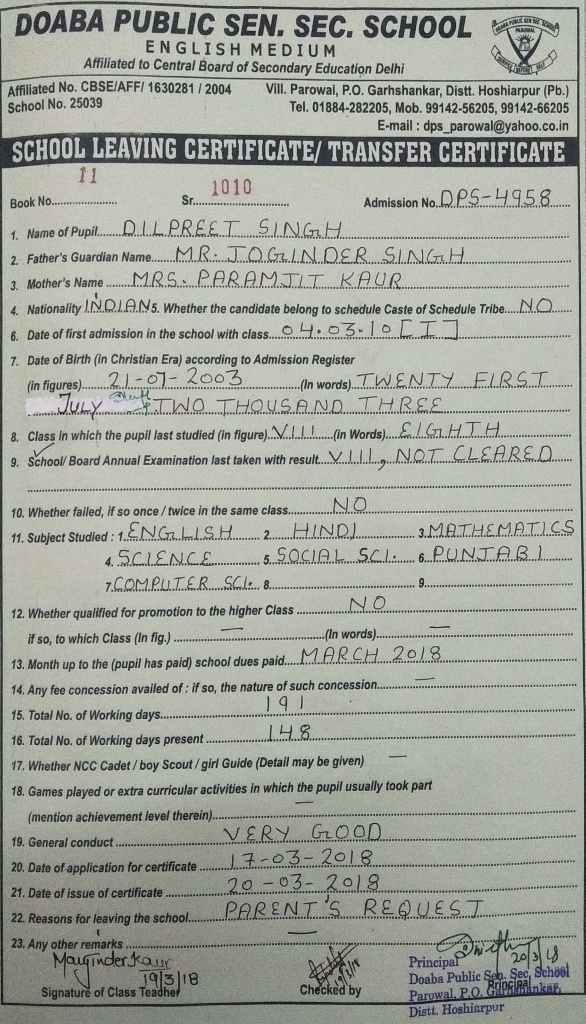 DOABA PUBLIC SEN. SEC. SCHOOL
ENGLISH MEDIUM
Affiliated to Central Board of Secondary Education Delhi
Affiliated No. CBSE/AFF/ 1630281 / 2004 Vill. Parowal, P.O. Garhshankar, Distt. Hoshiarpur (Pb.)
School No. 25039 Tel. 01884-282205, Mob. 99142-56205, 99142-66205
E-mail : dps_parowal@yahoo.co.in
SCHOOL LEAVING CERTIFICATE/ TRANSFER CERTIFICATE
Book No. 11 Sr. 1010 Admission No. DPS-4958
1. Name of Pupil DILPREET SINGH
2. Father's Guardian Name MR. JOGINDER SINGH
3. Mother's Name MRS. PARAMJIT KAUR
4. Nationality INDIAN 5. Whether the candidate belong to schedule Caste of Schedule Tribe NO
6. Date of first admission in the school with class 04.03.10 [I]
7. Date of Birth (in Christian Era) according to Admission Register
(in figures) 21-07-2003 (In words) TWENTY FIRST
JULY TWO THOUSAND THREE
8. Class in which the pupil last studied (in figure) VIII (in Words) EIGHTH
9. School/ Board Annual Examination last taken with result VIII, NOT CLEARED
10. Whether failed, if so once / twice in the same class NO
11. Subject Studied : 1. ENGLISH 2. HINDI 3. MATHEMATICS
4. SCIENCE 5. SOCIAL SCI. 6. PUNJABI
7. COMPUTER SCI. 8. 9.
12. Whether qualified for promotion to the higher Class NO
if so, to which Class (In fig.) — (In words) —
13. Month up to the (pupil has paid) school dues paid MARCH 2018
14. Any fee concession availed of : if so, the nature of such concession —
15. Total No. of Working days 191
16. Total No. of Working days present 148
17. Whether NCC Cadet / boy Scout / girl Guide (Detail may be given) —
18. Games played or extra curricular activities in which the pupil usually took part
(mention achievement level therein) —
19. General conduct VERY GOOD
20. Date of application for certificate 17-03-2018
21. Date of issue of certificate 20-03-2018
22. Reasons for leaving the school PARENT'S REQUEST
23. Any other remarks —
Manjinder Kaur
19/3/18
Signature of Class Teacher
19/3/18
Checked by
20/3/18
Principal
Doaba Public Sen. Sec. School
Principal
Parowal, P.O. Garhshankar,
Distt. Hoshiarpur